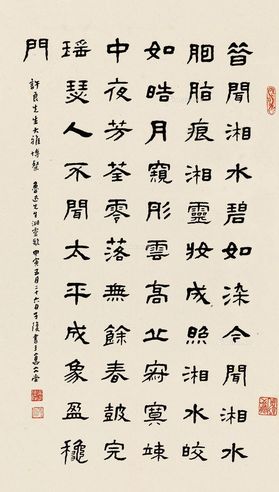 昔聞湘水碧如染今聞湘水
胭脂痕湘靈妝成照湘水皎
如皓月窺彤雲高丘寂寞竦
中夜芳荃零落無餘春皷完
瑤瑟人不聞太平成象盈穐
門
許良先生大雅博粲 魯迅先生湘靈歌 甲寅五月二十六日子復書